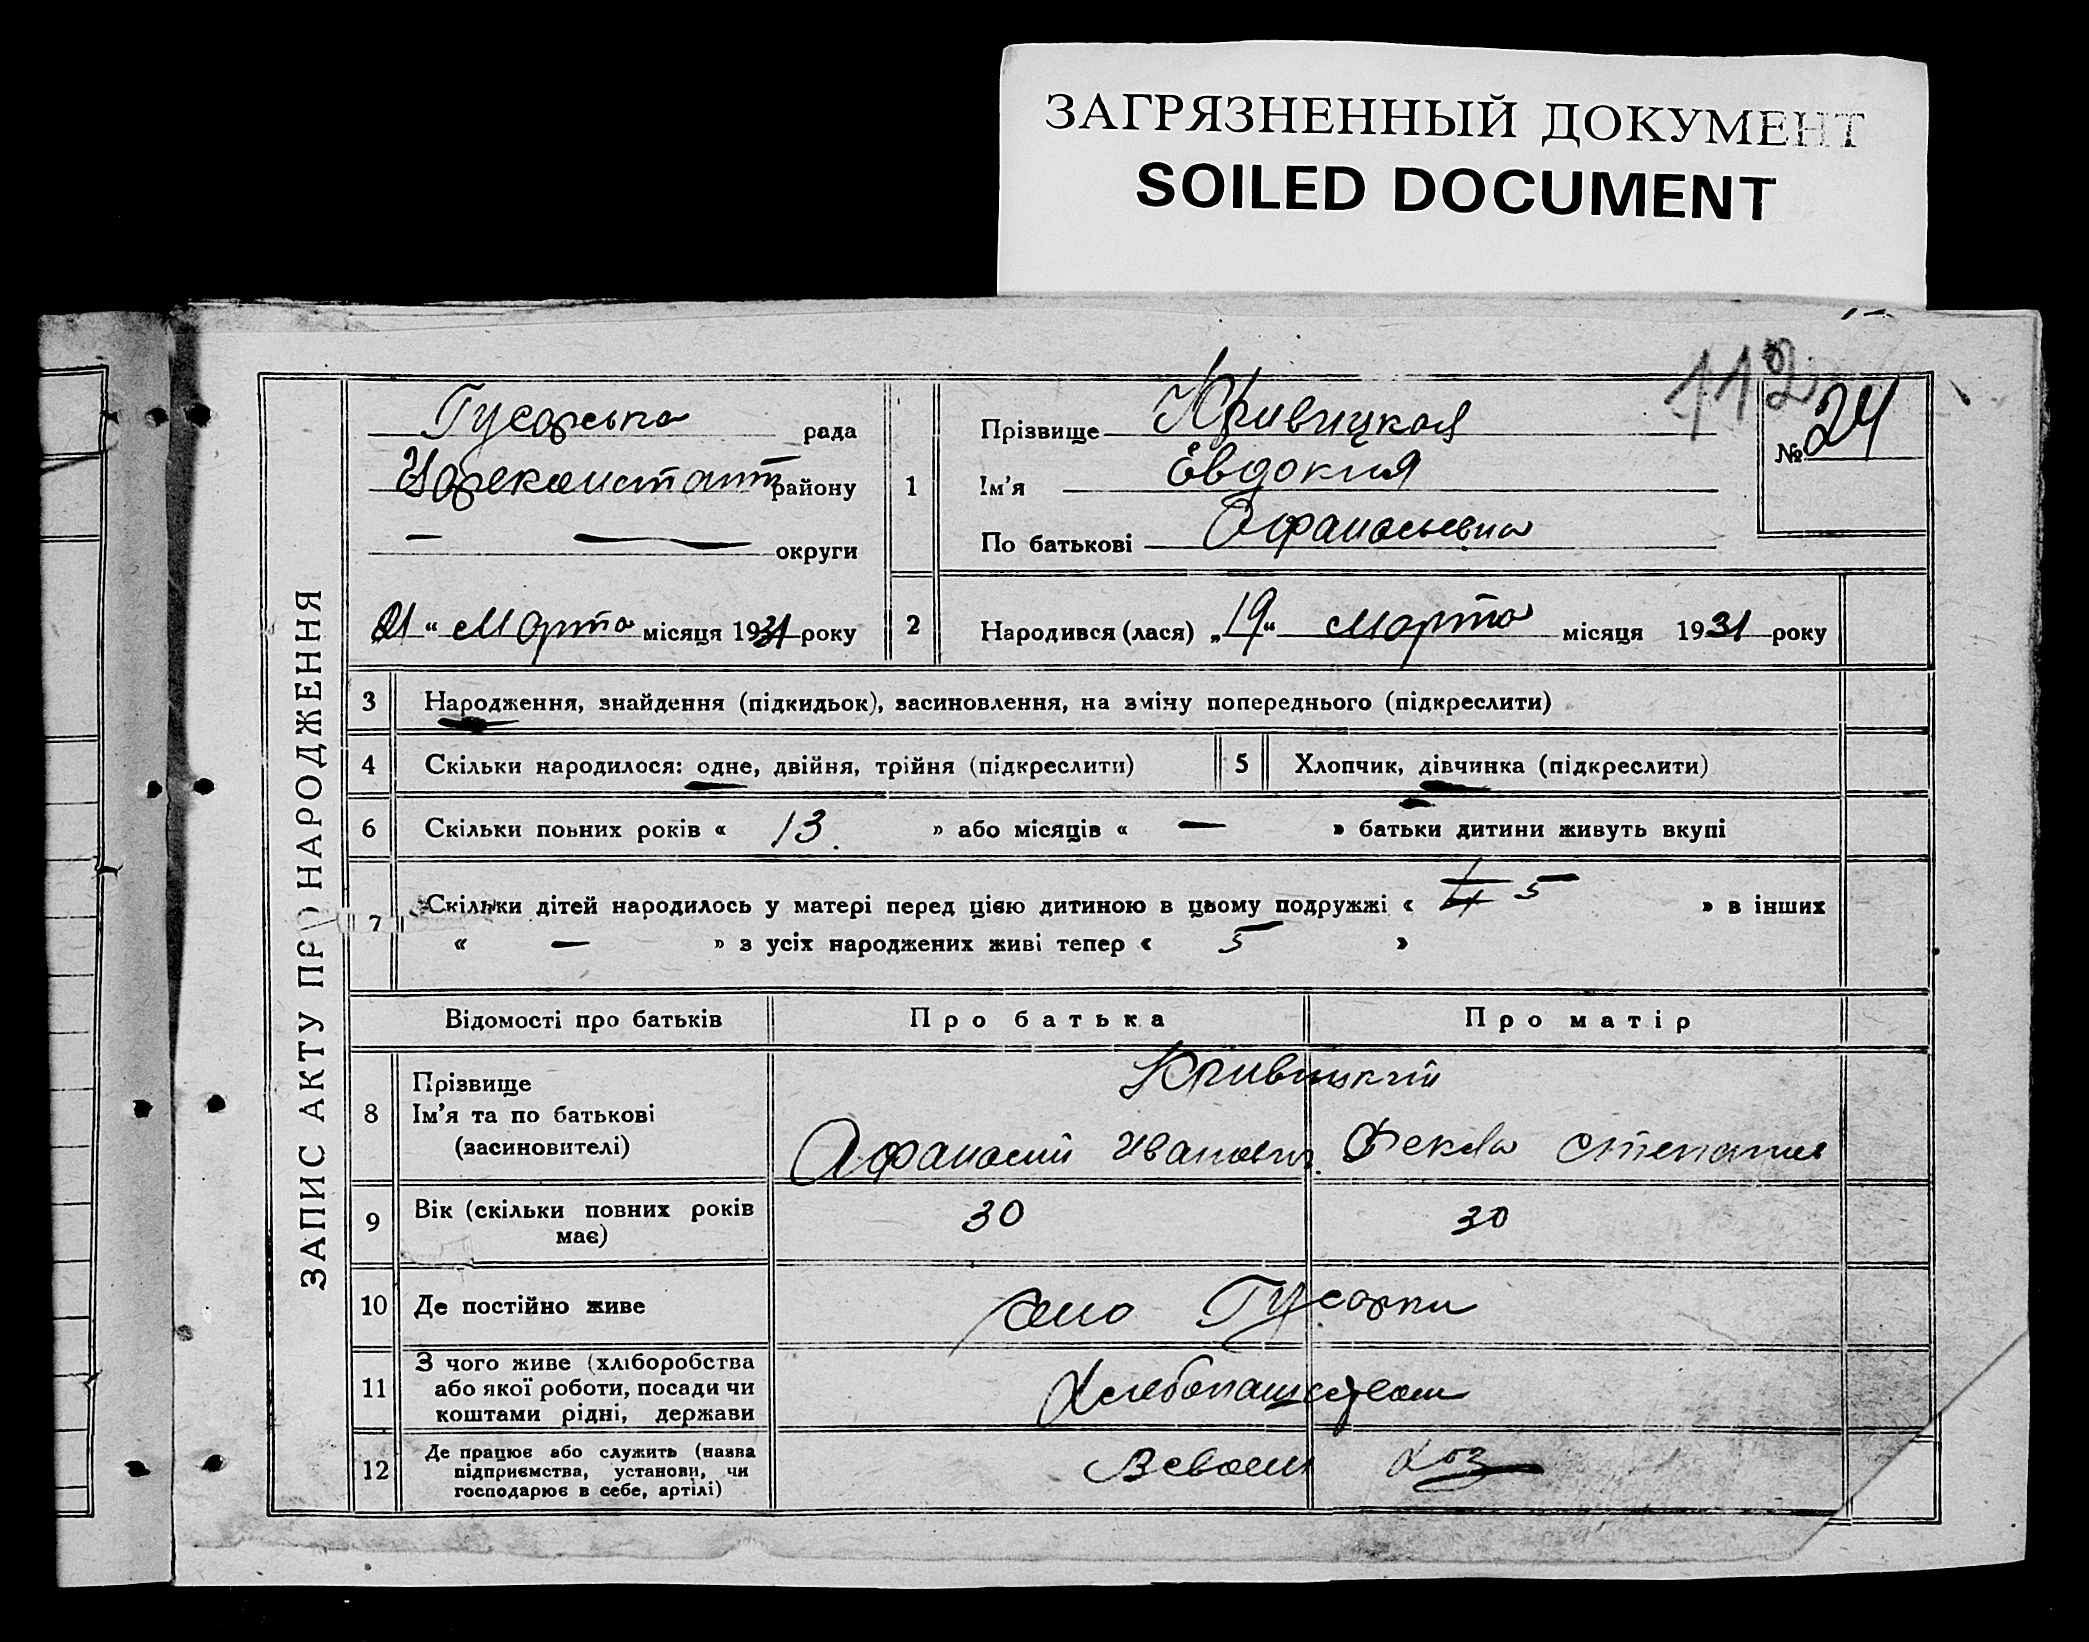 ЗАГРЯЗНЕННЫЙ ДОКУМЕНТ
SOILED DOCUMENT
112
ЗАПИС АКТУ ПРО НАРОДЖЕННЯ
Гусарська рада
Цареконстант району
— — округи
21 “ Марта місяця 1931 року
1
Прізвище Кривицкая
Ім’я Евдокия
По батькові Афанасьевна
№ 24
2 Народився (лася) „19“ Марта місяця 1931 року
3 Народження, знайдення (підкидьок), засиновлення, на зміну попереднього (підкреслити)
4 Скільки народилося: одне, двійня, трійня (підкреслити)
5 Хлопчик, дівчинка (підкреслити)
6 Скільки повних років « 13. » або місяців « — » батьки дитини живуть вкупі
7 Скільки дітей народилось у матері перед цією дитиною в цьому подружжі « 4 5 » в інших
« — » з усіх народжених живі тепер « 5 »
Відомості про батьків Про батька Про матір
8 Прізвище
Ім’я та по батькові
(засиновителі)
Кривицкий
Афанасий Иванович. Фекла Степанив
9 Вік (скільки повних років
має)
30 30
10 Де постійно живе село Гусарки
11 З чого живе (хліборобства
або якої роботи, посади чи
коштами рідні, держави
Хлебопашеством
12 Де працює або служить (назва
підприємства, установи, чи
господарює в себе, артілі)
В своем хоз